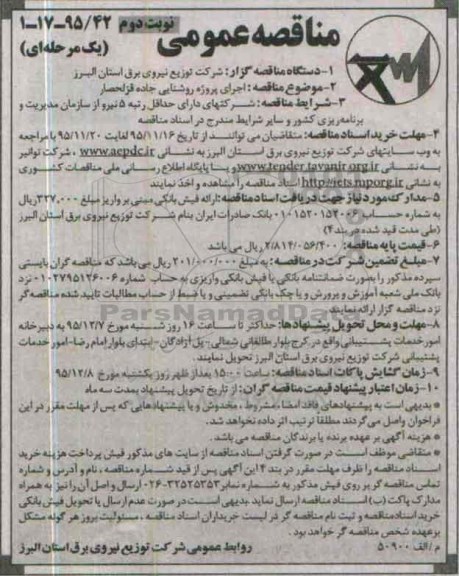 مناقصه عمومی
نوبت دوم ۹۵/۴۲-۱۷-۱
(یک مرحله‌ای)
۱-دستگاه مناقصه گزار: شرکت توزیع نیروی برق استان البرز
۲-موضوع مناقصه: اجرای پروژه روشنایی جاده قزلحصار
۳-شرایط مناقصه: شرکتهای دارای حداقل رتبه ۵ نیرو از سازمان مدیریت و
برنامه‌ریزی کشور و سایر شرایط مندرج در اسناد مناقصه
۴-مهلت خرید اسناد مناقصه: متقاضیان می توانند از تاریخ ۹۵/۱۱/۱۶ لغایت ۹۵/۱۱/۲۰ با مراجعه
به وب سایتهای شرکت توزیع نیروی برق استان البرز به نشانی www.aepdc.ir ، شرکت توانیر
به نشانی www.tender.tavanir.org.ir و یا پایگاه اطلاع رسانی ملی مناقصات کشوری
به نشانی http://iets.mporg.ir اسناد مناقصه را مشاهده و اخذ نمایند
۵-مدارک مورد نیاز جهت دریافت اسناد مناقصه: ارائه فیش بانکی مبنی بر واریز مبلغ ۳۲۷,۰۰۰ ریال
به شماره حساب ۰۱۰۱۵۲۰۱۵۲۰۰۶ بانک صادرات ایران بنام شرکت توزیع نیروی برق استان البرز
(طی مدت قید شده در بند ۴)
۶-قیمت پایه مناقصه: ۲/۸۱۴/۰۵۶/۴۰۰ ریال می باشد
۷-مبلغ تضمین شرکت در مناقصه: به مبلغ ۲۰۱/۰۰۰/۰۰۰ ریال می باشد که مناقصه گران بایستی
سپرده مذکور را بصورت ضمانتنامه بانکی یا فیش بانکی واریزی به حساب شماره ۰۱۰۲۷۹۵۱۲۶۰۰۶ نزد
بانک ملی شعبه آموزش و پرورش و یا چک بانکی تضمینی و یا ضبط از حساب مطالبات تایید شده مناقصه گر
نزد مناقصه گزار ارائه نمایند
۸-مهلت و محل تحویل پیشنهادها: حداکثر تا ساعت ۱۶ روز شنبه مورخ ۹۵/۱۲/۷ به دبیرخانه
امور خدمات پشتیبانی واقع در کرج بلوار طالقانی شمالی- پل آزادگان - ابتدای بلوار امام رضا- امور خدمات
پشتیبانی شرکت توزیع نیروی برق استان البرز تحویل نمایند.
۹-زمان گشایش پاکات اسناد مناقصه: ساعت ۱۵:۰۰ بعد از ظهر روز یکشنبه مورخ ۹۵/۱۲/۸
۱۰-زمان اعتبار پیشنهاد قیمت مناقصه گران: از تاریخ تحویل پیشنهاد بمدت سه ماه
* بدیهی است به پیشنهادهای فاقد امضا، مشروط، مخدوش و یا پیشنهادهایی که پس از مهلت مقرر در این
فراخوان واصل می‌گردند مطلقا ترتیب اثر داده نخواهد شد.
* هزینه آگهی بر عهده برنده یا برندگان مناقصه می باشد.
* متقاضی موظف است در صورت گرفتن اسناد مناقصه از سایت های مذکور فیش پرداخت هزینه خرید
اسناد مناقصه را ظرف مهلت مقرر در بند ۴ این آگهی پس از قید شماره مناقصه ، نام و آدرس و شماره
تماس مناقصه گر بر روی فیش مذکور به شماره نمابر ۳۲۵۲۵۳۵۳-۰۲۶ ارسال و اصل آن را نیز به همراه
مدارک پاکت (ب) اسناد مناقصه ارسال نماید .بدیهی است در صورت عدم ارسال یا تحویل فیش بانکی
خرید اسناد مناقصه و ثبت نام مناقصه گر در لیست خریداران اسناد مناقصه ، مسئولیت بروز هر گونه مشکل
بر عهده شخص مناقصه گر خواهد بود .
م / الف ۵۰۹۰۰ روابط عمومی شرکت توزیع نیروی برق استان البرز
ParsNamadData